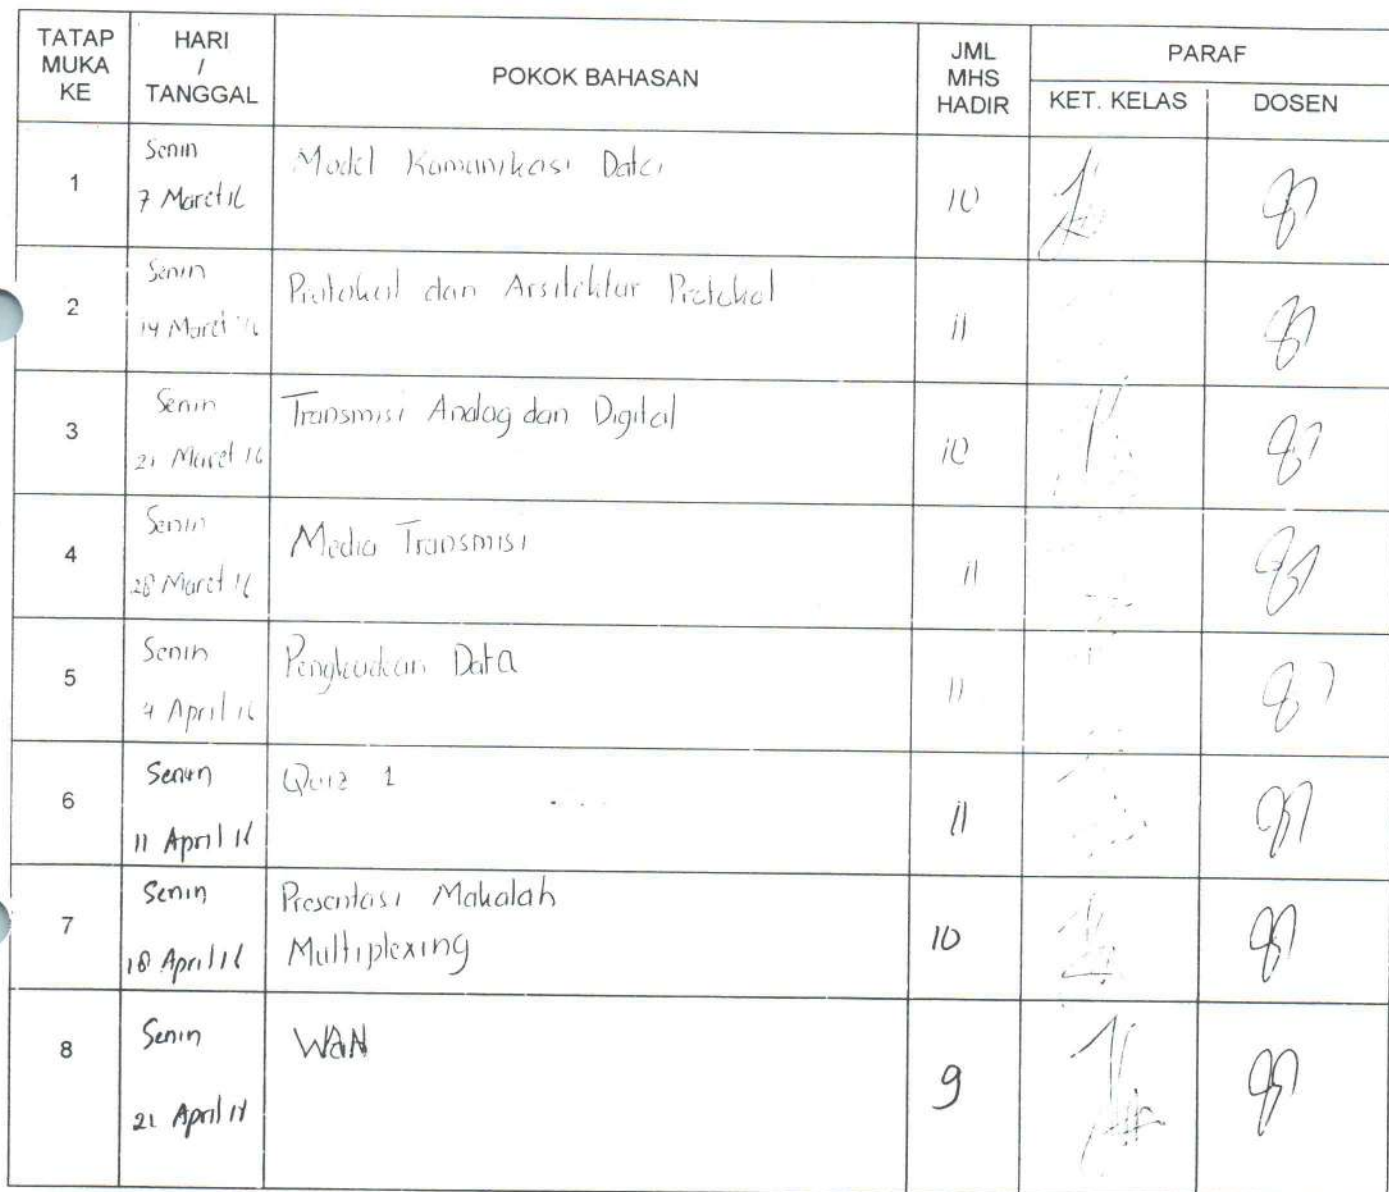 TATAP MUKA KE
HARI / TANGGAL
POKOK BAHASAN
JML MHS HADIR
PARAF
KET. KELAS
DOSEN
1
Senin
7 Maret 16
Model Komunikasi Data
10
2
Senin
14 Maret 16
Protokol dan Arsitektur Protokol
11
3
Senin
21 Maret 16
Transmisi Analog dan Digital
10
4
Senin
28 Maret 16
Media Transmisi
11
5
Senin
4 April 16
Pengkodean Data
11
6
Senin
11 April 16
Quiz 1
11
7
Senin
18 April 16
Presentasi Makalah
Multiplexing
10
8
Senin
April
WAN
9